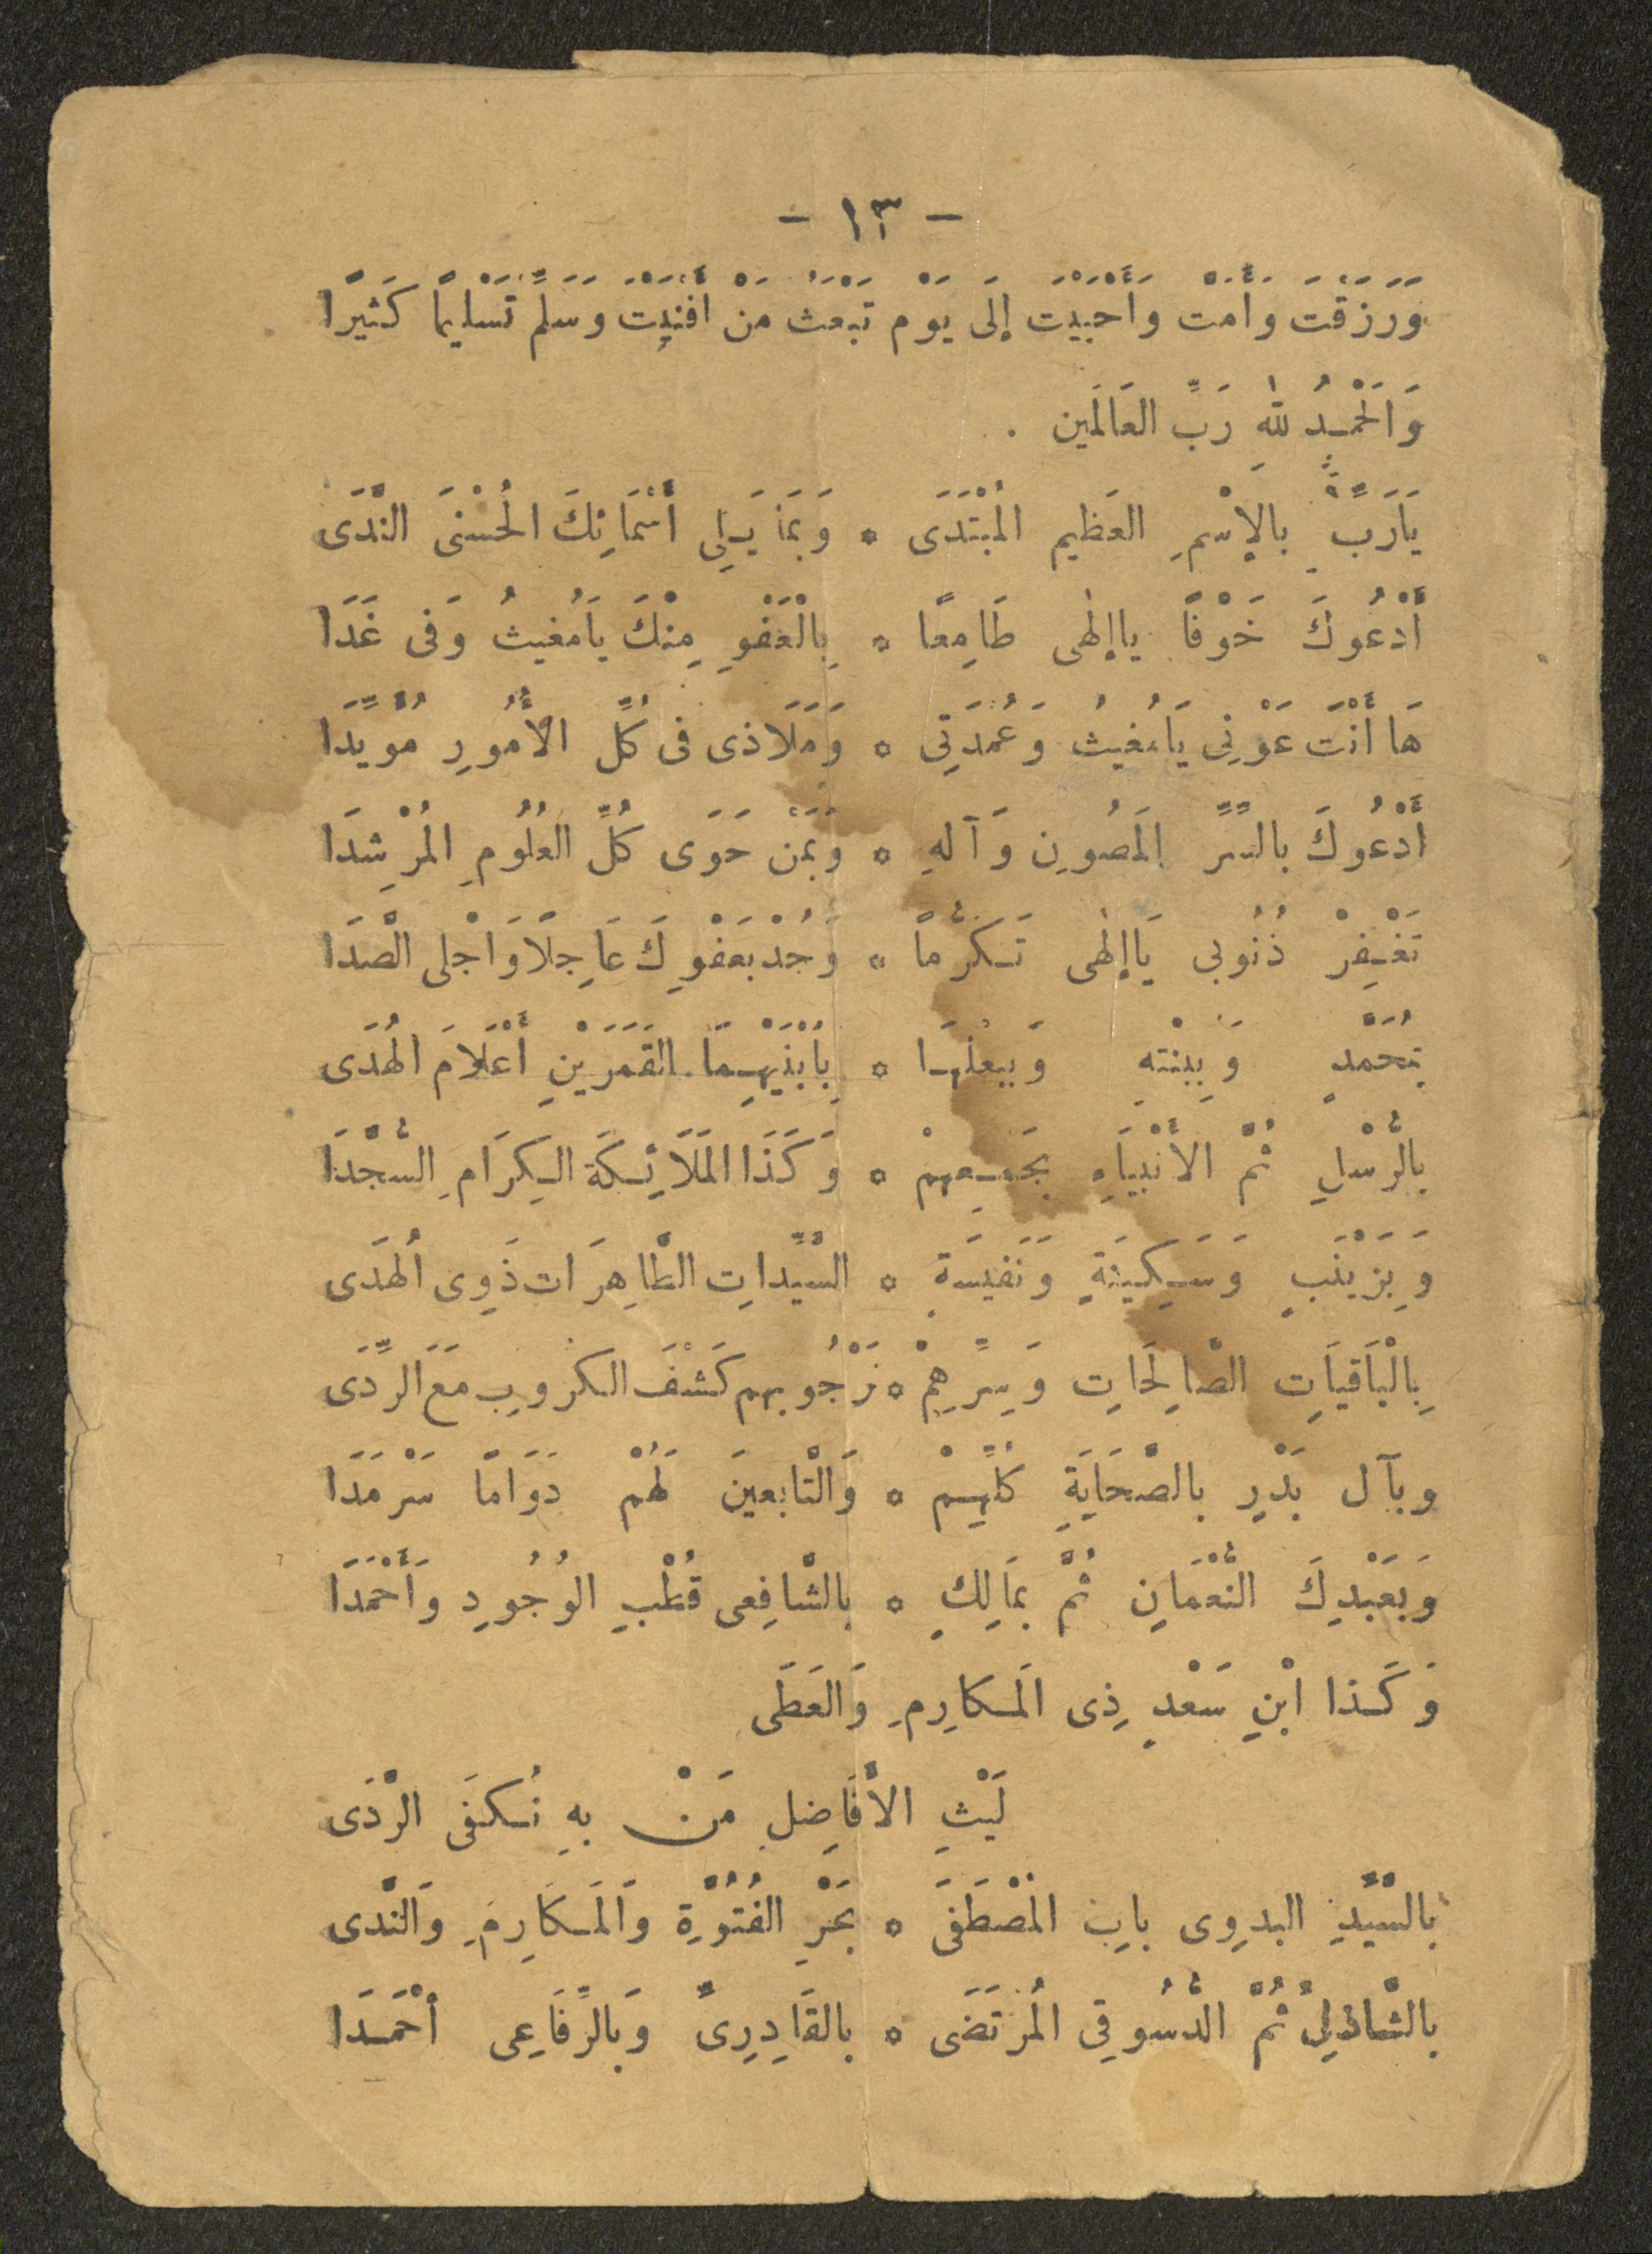 - ١٣ -
وَرَزَقْتَ وَأَمَتَّ وَأَحْيَيْتَ إِلَى يَوْمِ تَبْعَثُ مَنْ أَفْنَيْتَ وَسَلِّمْ تَسْلِيمًا كَثِيرًا
وَالْحَمْدُ لِلّٰهِ رَبِّ العَالَمِين .
يَارَبِّ بالإسْمِ العَظِيمِ المُبْتَدَى * وَبِمَا يَلِى أَسْمَائِكَ الحُسْنَى النَّدَى
أَدْعُوكَ خَوْفًا ياإلٰهى طَامِعًا * بِالْعَفْوِ مِنْكَ يَامُغِيثُ وَفى غَدَا
هَا أَنْتَ عَوْنِى يَامُغِيثُ وَعُمْدَتِى * وَمَلَاذى فى كُلِّ الأُمُورِ مُؤَيِّدَا
أَدْعُوكَ بالسِّرِّ المَصُونِ وَآلهِ * وَبِمَنْ حَوَى كُلِّ العُلُومِ المُرْشِدَا
تَغْفِرْ ذُنُوبى يَاإلٰهى تَكَرُّمًا * وَجُدْ بعَفْوِكَ عَاجِلًا وَاجْلِى الصَّدَا
بِمُحَمَّدٍ وَبِبِنْتِهِ وَبِبَعْلِهَا * بِابْنَيْهِمَا القَمَرَيْنِ أَعْلَامَ الهُدَى
بالرُّسْلِ ثُمَّ الأَنْبِيَاءِ بِجَمِيعِهِمْ * وَكَذَا المَلَائِكَة الكِرَامِ السُّجَّدَا
وَبِزَيْنَبٍ وَسَكِينَةٍ وَنَفِيسَةٍ * السَّيِّدَاتِ الطَّاهِرَات ذَوِى الهُدَى
بِالْبَاقِيَاتِ الصَّالِحَاتِ وَسِرِّهِمْ * نَرْجُو بهم كَشْفَ الكروبِ مَعَ الرَّدَى
وبآل بَدْرٍ بالصَّحَابَةِ كُلِّهِمْ * وَالتَّابِعينَ لَهُمْ دَوَامًا سَرْمَدَا
وَبعَبْدِكَ النُّعْمَانِ ثُمَّ بمَالِكٍ * بالشَّافِعى قُطْبِ الوُجُودِ وَأَحْمَدَا
وَكَذا ابْنِ سَعْدٍ ذِى المَكارِمِ وَالعَطَى
لَيْثِ الأَفَاضِلِ مَنْ بهِ نُكفَى الرَّدَى
بالسَّيِّدِ البدوِى بابِ المُصْطَفَى * بَحْرِ الفُتُوَّةِ وَالمَكَارِمِ وَالنَّدى
بالشَّاذِلِىِّ ثُمَّ الدُّسُوقِى المُرْتَضَى * بالقَادِرِىِّ وَبالرِّفَاعِى أَحْمَدَا